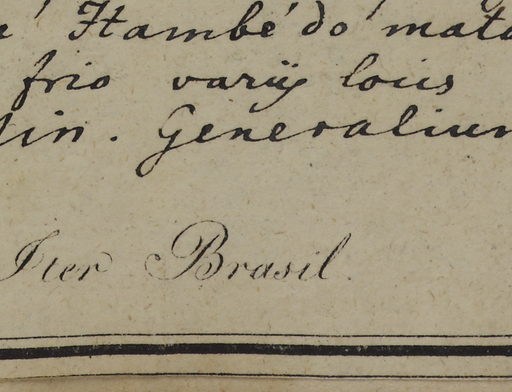 Itambé do mato
frio varijs locis
Min. Generalium
Iter Brasil.